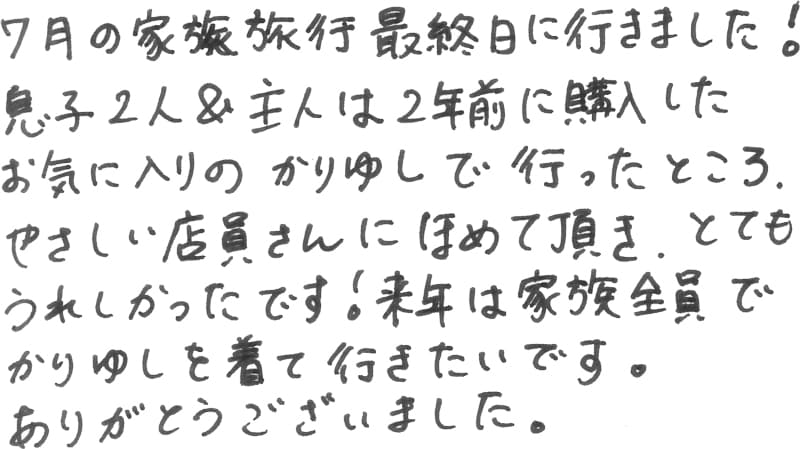 7月の家族旅行最終日に行きました!
息子2人&主人は2年前に購入した
お気に入りの かりゆしで 行ったところ.
やさしい店員さんに ほめて頂き. とても
うれしかったです!来年は家族全員で
かりゆしを着て行きたいです。
ありがとうございました。